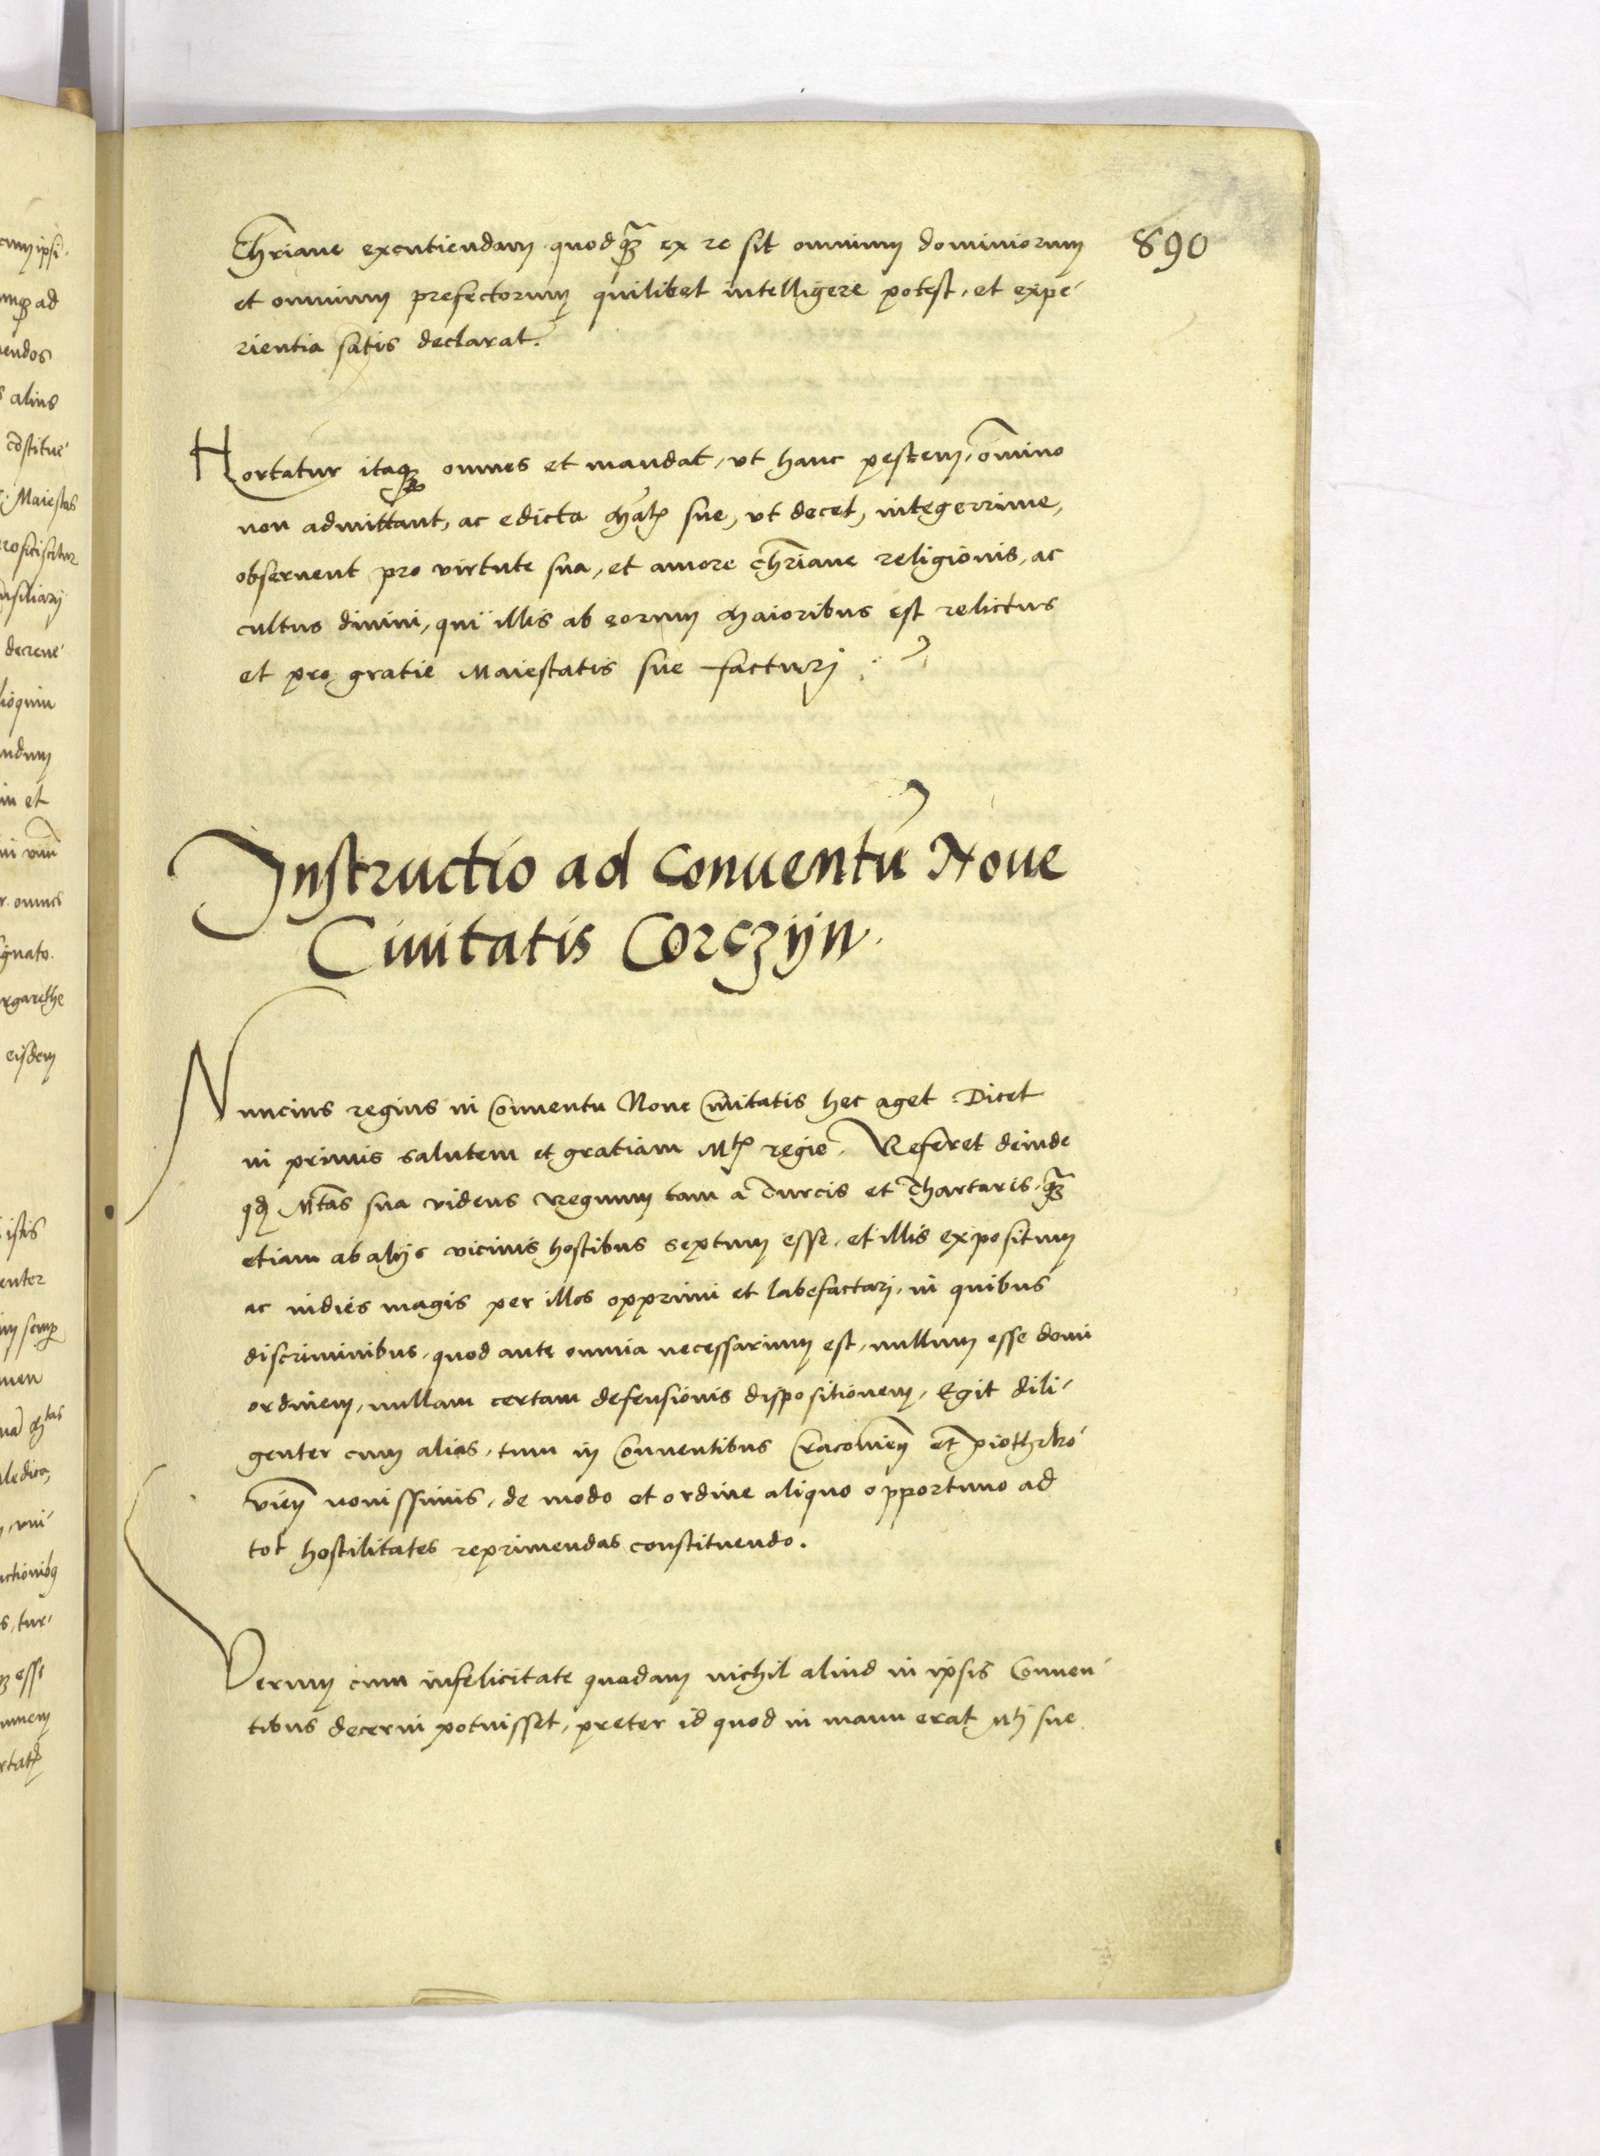 890
Chr̃iane excutiendam quodqꝫ ex re sit omnium dominiorum
et omnium prefectorum quilibet intelligere potest, et expe-
rientia satis declarat.
Hortatur itaqꝫ omnes et mandat, ut hanc pestem, om̃ino
non admittant, ac edicta Ma͞tis sue, ut decet, integerrime,
obseruent pro virtute sua, et amore chr̃iane religionis, ac
cultus diuini, qui illis ab eorum Maioribus est relictus
et pro gratie Maiestatis sue facturi
Instructio ad Conuentũ Noue
Ciuitatis Corczÿn.
Nuncius regius in Conuentu Noue Ciuitatis hec aget. Dicet
in primis salutem et gratiam Mtis regie. Referet deinde
qđ Mtas sua videns Regnum tam a Turcis et Thartaris, qꝫ
etiam ab alijs vicinis hostibus septum esse, et illis expositum
ac indies magis per illos opprimi et labefactari, in quibus
discriminibus, quod ante omnia necessarium est, nullum esse domi
ordinem, nullam certam defensionis dispositionem, Egit dili-
genter cum alias, tum in Conuentibus Cracouien̄ et piothrko-
vien̄ nouissimis, de modo et ordine aliquo opportuno ad
tot hostilitates reprimendas constituendo.
Verum cum infelicitate quadam nichil aliud in ipsis Conuen-
tibus decerni potuisset, preter id quod in manu erat Mtj sue